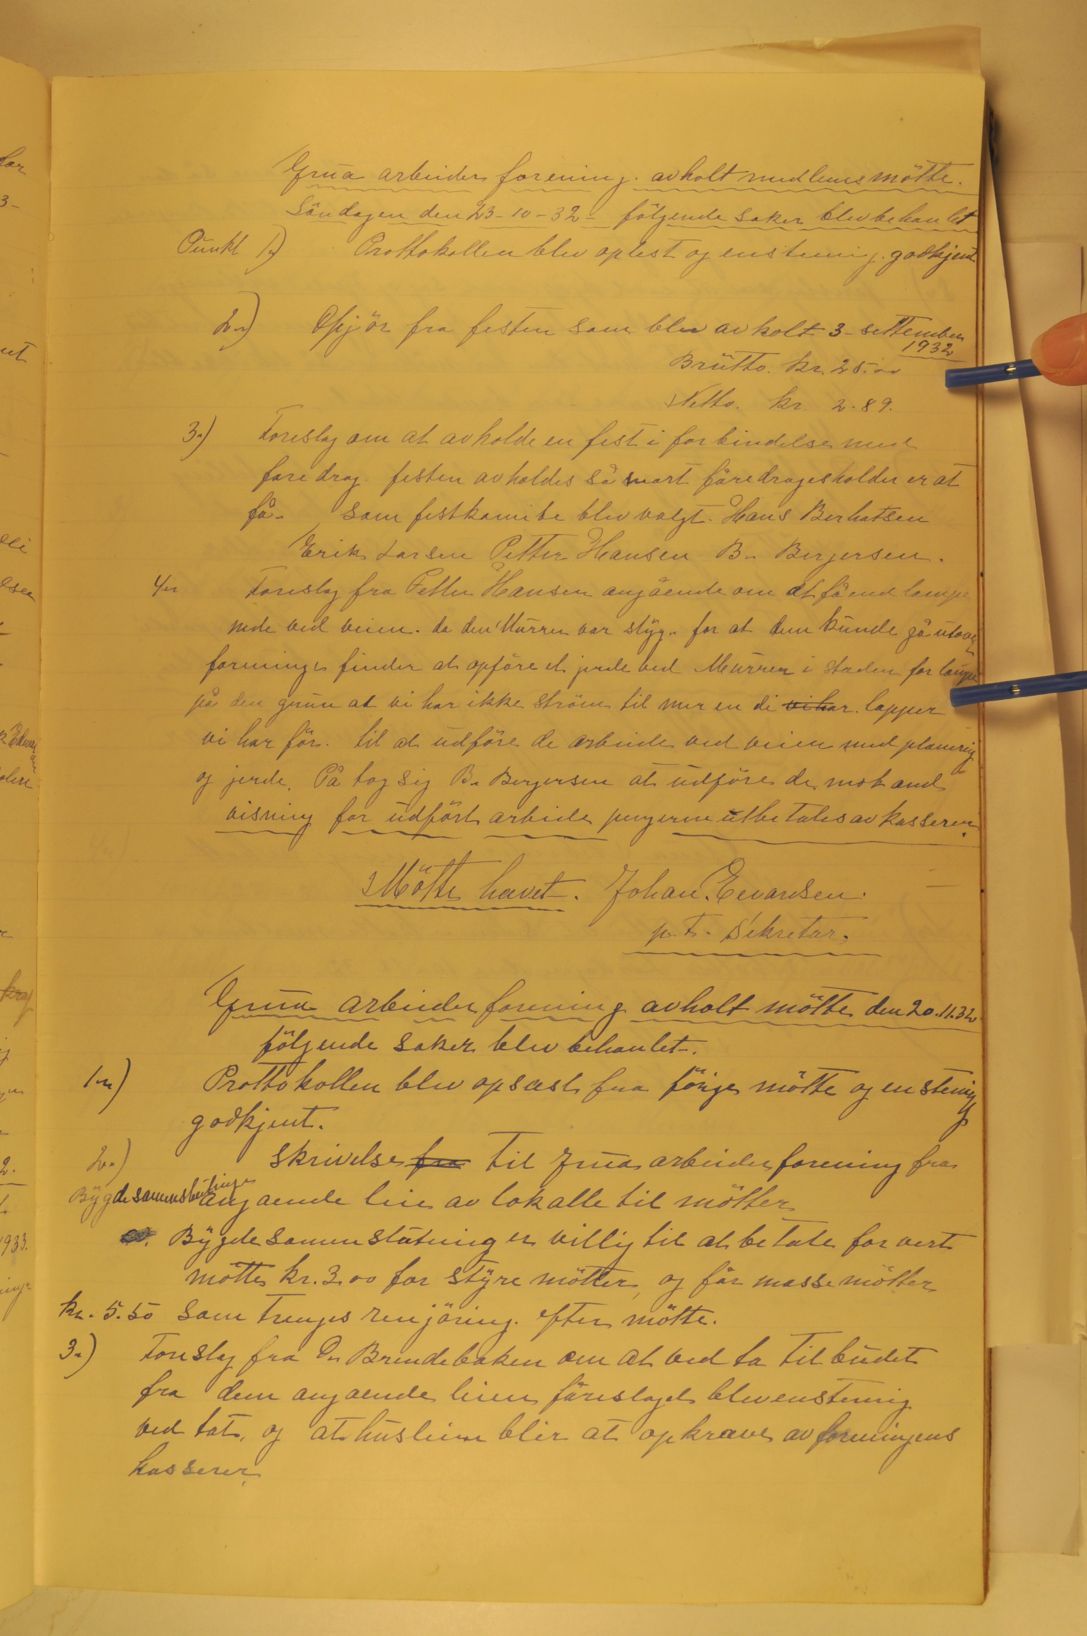 Grua arbeider forening. avholt medlemsmötte.
Söndagen den 23-10-32- følgende saker blev behanlet
Punkt 1.) Prottokollen blev oplest og enstemig. godkjent
2.) Opjör fra festen som blev av holt 3-settember
1932
Brutto. kr. 25.00
Netto. kr. 2.89.
3.) Foreslag om at avholde en fest i forbindelse med
foredrag. festen avholdes så snart foredragesholder er at
få. Som festkomite blev valgt. Hans Berhatsen
Erik Larsen Petter Hansen B. Bergersen.
4. Foreslag fra Petter Hansen angående om at få end lampe
nede ved veien. da den Murren var styg. for at dem kunde gå utover
foreninge finder at opföre et jerde ved Murren i staden for lampe
på den grunn at vi har ikke ström til mer en di vi har. lapper
vi har för. til at udföre de arbeide ved veien med planering
og jerde. På tog sig B. Bergersen at udföre de mot and
visning for udfört arbeide pengerne utbetales av kasseren.
Mötte hevet. Johan. Evansen.
p.t. Sekretær.
Grua arbeider forening avholt mötte den 20.11.32
fölgende saker blev behanlet.
1.) Prottokollen blev opsæst fra forige mötte og enstemig
godkjent.
2.) Skrivelse fra til Grua arbeider forening fra
Bygdesamnstutninge angaende leie av lokalle til mötter
Bygde samnstutning er villig til at betale for vert
mötte kr. 3.00 for styre mötter, og får masse mötter
kr. 5.50 som trenges renjöring. efter mötte.
3.) Foreslag fra O. Brendebaken om at ved ta tilbudet
fra dem angaende leien föreslaget blev enstemig
ved tat. og at husleien blir at opkreves av foreningens
kasserer.